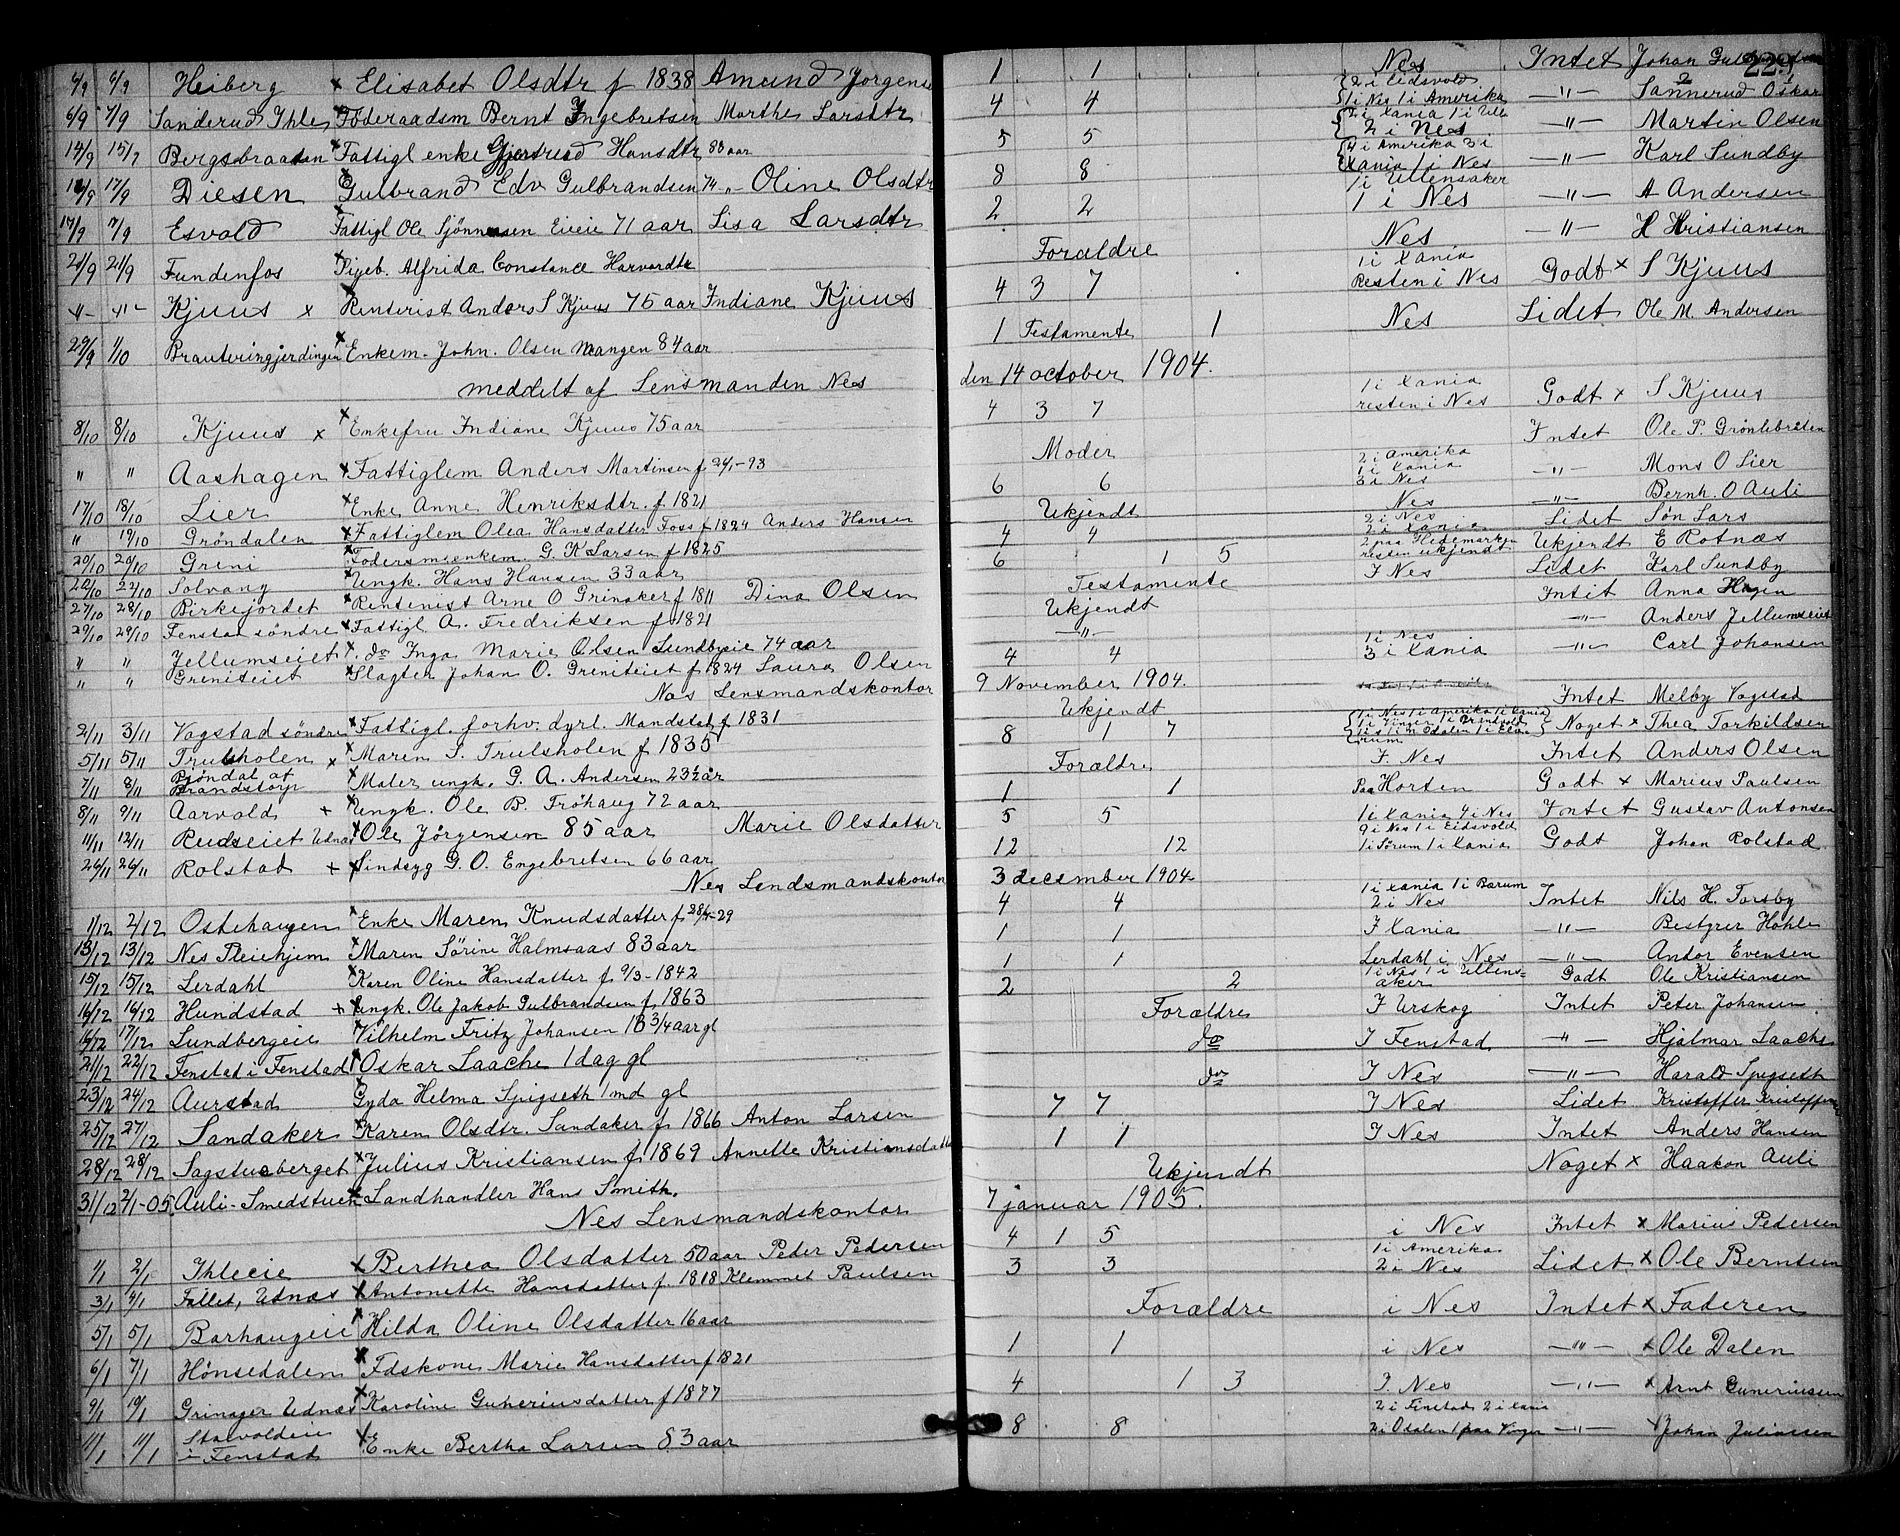 6/9 6/9 Heiberg x Elisabet Olsdtr f 1838 Amund Jorgense 1 1 Nes Intet Johan
229
6/9 7/9 Sanderud Ihle x Föderaadsm Bernt Ingebretsen Marthe Larsdtr 4 4 2 i Eidsvold 1 i Nes 1 i Amerika -"- Sannerud Oskar
14/9 15/9 Bergsbraatan x Fattigl enke Gjertrud Hansdtr 83 aar 5 5 2 i Xania 1 i Ull 2 i Nes -"- Martin Olsen
17/9 Diesen x Gulbrand Edv Gulbrandsen 74 " Oline Olsdtr 8 8 4 i Amerika 3 i Xania 1 i Nes -"- Karl Sundby
17/9 Esvold x Fattigl Ole Sjönnesen Eieie 71 aar Lisa Larsdtr 2 2 1 i Ullensaker 1 i Nes -"- A Andersen
21/9 21/9 Fundenfos x Pigeb. Alfrida Constance Harvardtr Forældre Nes -"- H Kristiansen
-"- -"- Kjuus x x Renterist Anders S Kjuus 75 aar Indiane Kjuus 4 3 7 1 i Xania Resten i Nes Godt x S Kjuus
29/9 1/10 Brauteringjerdingen x Enkem. John. Olsen Mangen 84 aar 1 Testamente 1 Nes Lidet Ole M. Andersen
meddelt af Lensmanden Nes den 14 october 1904.
8/10 8/10 Kjuus x x Enkefru Indiane Kjuus 75 aar 4 3 7 1 i Xania resten i Nes Godt x S Kjuus
" " Aashagen x Fattiglem Anders Martinsen f 24/1-93 Moder Intet Ole P. Grönlebråten
17/10 18/10 Lier x Enke Anne Henriksdtr. f 1821 6 6 2 i Amerika 1 i Xania 3 i Nes -"- Mons O Lier
" 19/10 Gröndalen x Fattiglem Olea Hansdatter Foss f 1824 Anders Hansen Ukjendt Nes -"- Bernh. O Auli
20/10 20/10 Greni x Födersmsenkem. G. K Larsen f 1825 4 4 2 i Nes 2 i Xania Lidet Sön Lars
22/10 22/10 Solvang x Ungk. Hans Hansen 33 aar 6 1 5 2 paa Hedemarken resten ukjendt Ukjendt E Rotnæs
27/10 28/10 Birkejordet x Rentenist Arne O Grinaker f 1811 Dina Olsen Testamente I Nes Lidet Karl Sundby
29/10 29/10 Fenstad söndre x Fattigl A. Fredriksen f 1821 Ukjendt Intet Anna Hagen
" " Jellumseiet x do Inga Marie Olsen Sundbyeie 74 aar -"- -"- Anders Jellumseiet
" " Greniteiet x Slagter Johan O. Greniteiet f 1824 Laura Olsen 4 4 1 i Nes 3 i Xania -"- Carl Johansen
Nes Lensmandskontor 9 November 1904.
2/11 3/11 Vagstad söndre x Fattigl. forhv. dyrl. Mandstad f 1831 Ukjendt Intet Melby Vagstad
5/11 5/11 Trulsholen x x Maren S. Trulsholen f 1835 8 1 7 1 i Nes 1 i Amerika 1 i Xania 1 i Vinger 1 i Odalen 1 i Elverum Noget x Thea Torkildsen
7/11 8/11 Björdal af Brandstorp x Maler ungk. G. A. Andersen 23 1/2 år Forældre I. Nes Intet Anders Olsen
8/11 9/11 Aarvold + x Ungk. Ole B. Fröhaug 72 aar 1 1 Paa Horten Godt x Marius Paulsen
11/11 12/11 Rudseiet Udnæs x Ole Jörgensen 85 aar Marie Olsdatter 5 5 1 i Xania 4 i Nes Intet Gustav Antonsen
26/11 26/11 Rolstad + x Sindsyg G. O. Engebretsen 66 aar 12 12 9 i Nes 1 i Eidsvold 1 i Sörum 1 i Xania Godt Johan Rolstad
Nes Lendsmandskontor 3 december 1904
1/12 2/12 Ostehaugen x Enke Maren Knudsdatter f. 28/4-29 4 4 1 i Xania 1 i Bærum 2 i Nes Intet Nils H. Torsby
13/12 13/12 Nes Pleiehjem x Maren Sörine Halmsaas 83 aar 1 1 I Xania -"- Bestyrer Hohle
15/12 15/12 Lerdahl x Karen Oline Hansdatter f. 9/3-1842 1 1 Lerdahl i Nes -"- Andor Evensen
16/12 16/12 Hundstad + x Ungk. Ole Jakob Gulbrandsen f. 1863 2 2 1 i Nes 1 i Ullensaker Godt Ole Kristiansen
16/12 17/12 Lundbergeie x Vilhelm Fritz Johansen 18 3/4 aar gl Forældre I Urskog Intet Peter Johansen
21/12 22/12 Fenstad i Fenstad x Oskar Laache 1 dag gl do I Fenstad -"- Hjalmar Laache
23/12 24/12 Aurstad x Gyda Helma Spigseth 1 md gl do I Nes -"- Harald Spigseth
25/12 27/12 Sandaker x Karen Olsdtr. Sandaker f 1866 Anton Larsen 7 7 I Nes Lidet Kristoffer Kristoffersen
28/12 28/12 Sagstueberget x Julius Kristiansen f 1869 Annette Kristiansdatter 1 1 I Nes Intet Anders Hansen
31/12 2/1-05 Auli-Smedstuen x Landhandler Hans Smith. Ukjendt Noget x Haakon Auli
Nes Lensmandskontor 7 januar 1905.
1/1 2/1 Ihleeie x Berthea Olsdatter 50 aar Peder Pedersen 4 1 5 i Nes Intet x Marius Pedersen
3/1 4/1 Fallet, Udnæs x Antonette Hansdatter f 1818 Klemmet Paulsen 3 3 1 i Amerika 2 i Nes Lidet x Ole Berntsen
5/1 5/1 Barhaugeie x Hilda Oline Olsdatter 16 aar Forældre i Nes Intet x Faderen
6/1 7/1 Hönsedalen x Fdskone Marie Hansdatter f 1821 1 1 i Nes -"- x Ole Dalen
9/1 10/1 Grinager Udnæs x Karoline Guneriusdatter f 1877 4 1 3 I. Nes -"- x Arnt Guneriussen
11/1 11/1 Starvoldeie i Fenstad x Enke Bertha Larsen 83 aar 8 8 2 i Fenstad 2 i Xania 2 i Odalen 1 paa Vinger -"- x Johan Juliussen